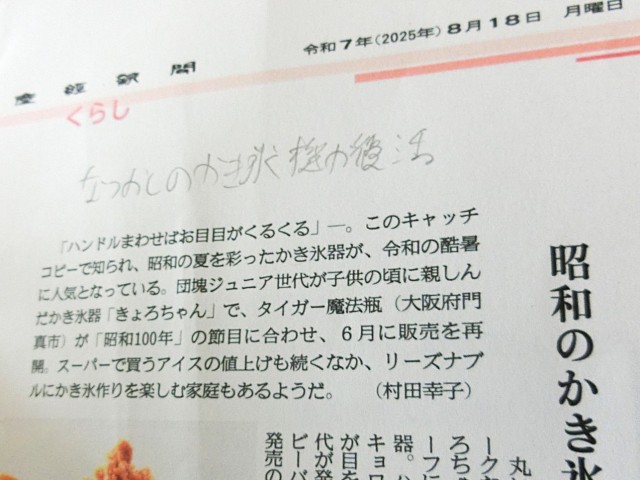 令和7年(2025年)8月18日 月曜日
産經新聞
くらし
なつかしのかき氷機の復活
「ハンドルまわせばお目目がくるくる」―。このキャッチ
コピーで知られ、昭和の夏を彩ったかき氷器が、令和の酷暑
に人気となっている。団塊ジュニア世代が子供の頃に親しん
だかき氷器「きょろちゃん」で、タイガー魔法瓶（大阪府門
真市）が「昭和100年」の節目に合わせ、６月に販売を再
開。スーパーで買うアイスの値上げも続くなか、リーズナブ
ルにかき氷作りを楽しむ家庭もあるようだ。　（村田幸子）
昭和のかき氷
丸
ーク
ろち
ーフに
器。ハ
キョロ
が目を
代が発
ピーバ
発売の